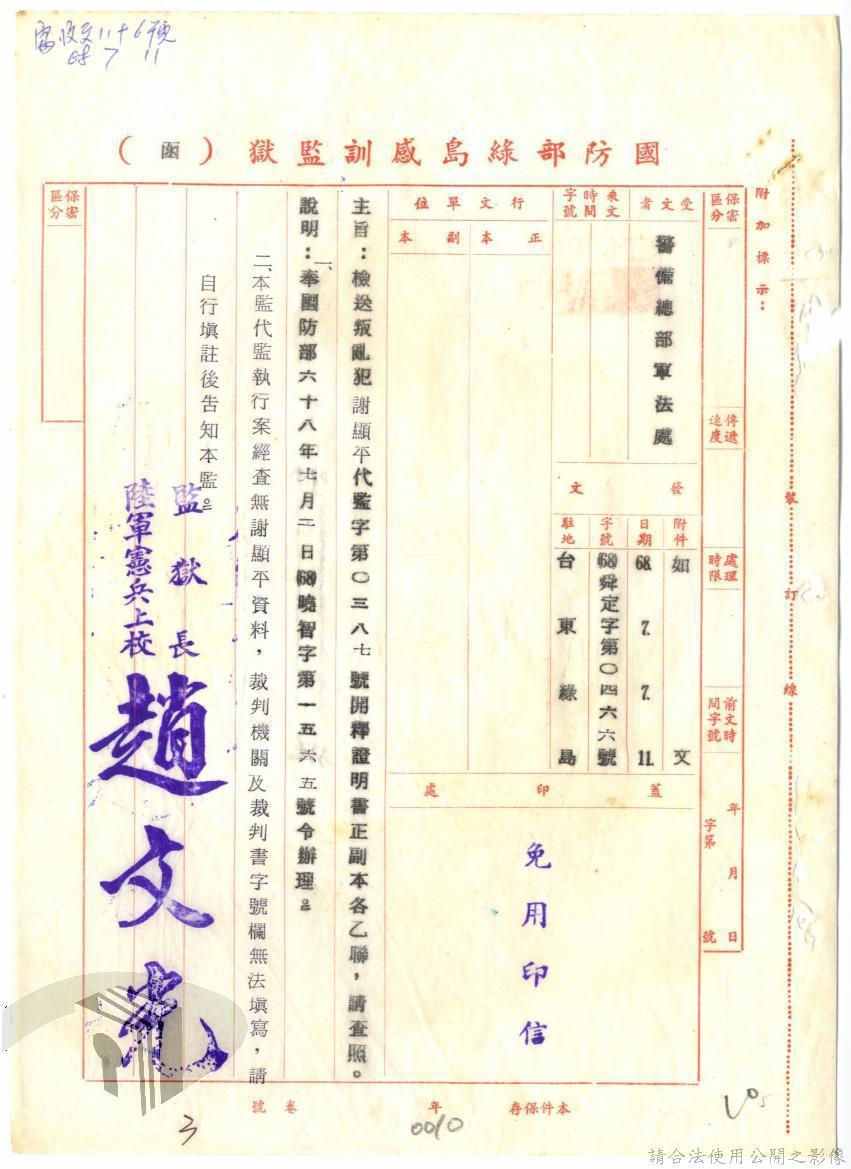 國防部綠島感訓監獄（函）
附加標示：
保密區分
傳遞速度
處理時限
前文時間字號
年 月 日
字第 號
受文者
警備總部軍法處
來文
時間
字號
行文單位
正本
副本
發文
附件
如文
日期
68. 7. 7. 11.
字號
(68)舜定字第○四六六號
駐地
台東綠島
蓋印處
免用印信
主旨：檢送叛亂犯謝顯平代監字第○三八七號開釋證明書正副本各乙聯，請查照。
說明：一、奉國防部六十八年七月二日(68)曉智字第一五六五號令辦理。
二、本監代監執行案經查無謝顯平資料，裁判機關及裁判書字號欄無法填寫，請
自行填註後告知本監。
監獄長
陸軍憲兵上校
趙文
保密區分
裝訂線
本件保存 年
卷號
0010
3
請合法使用公開之影像